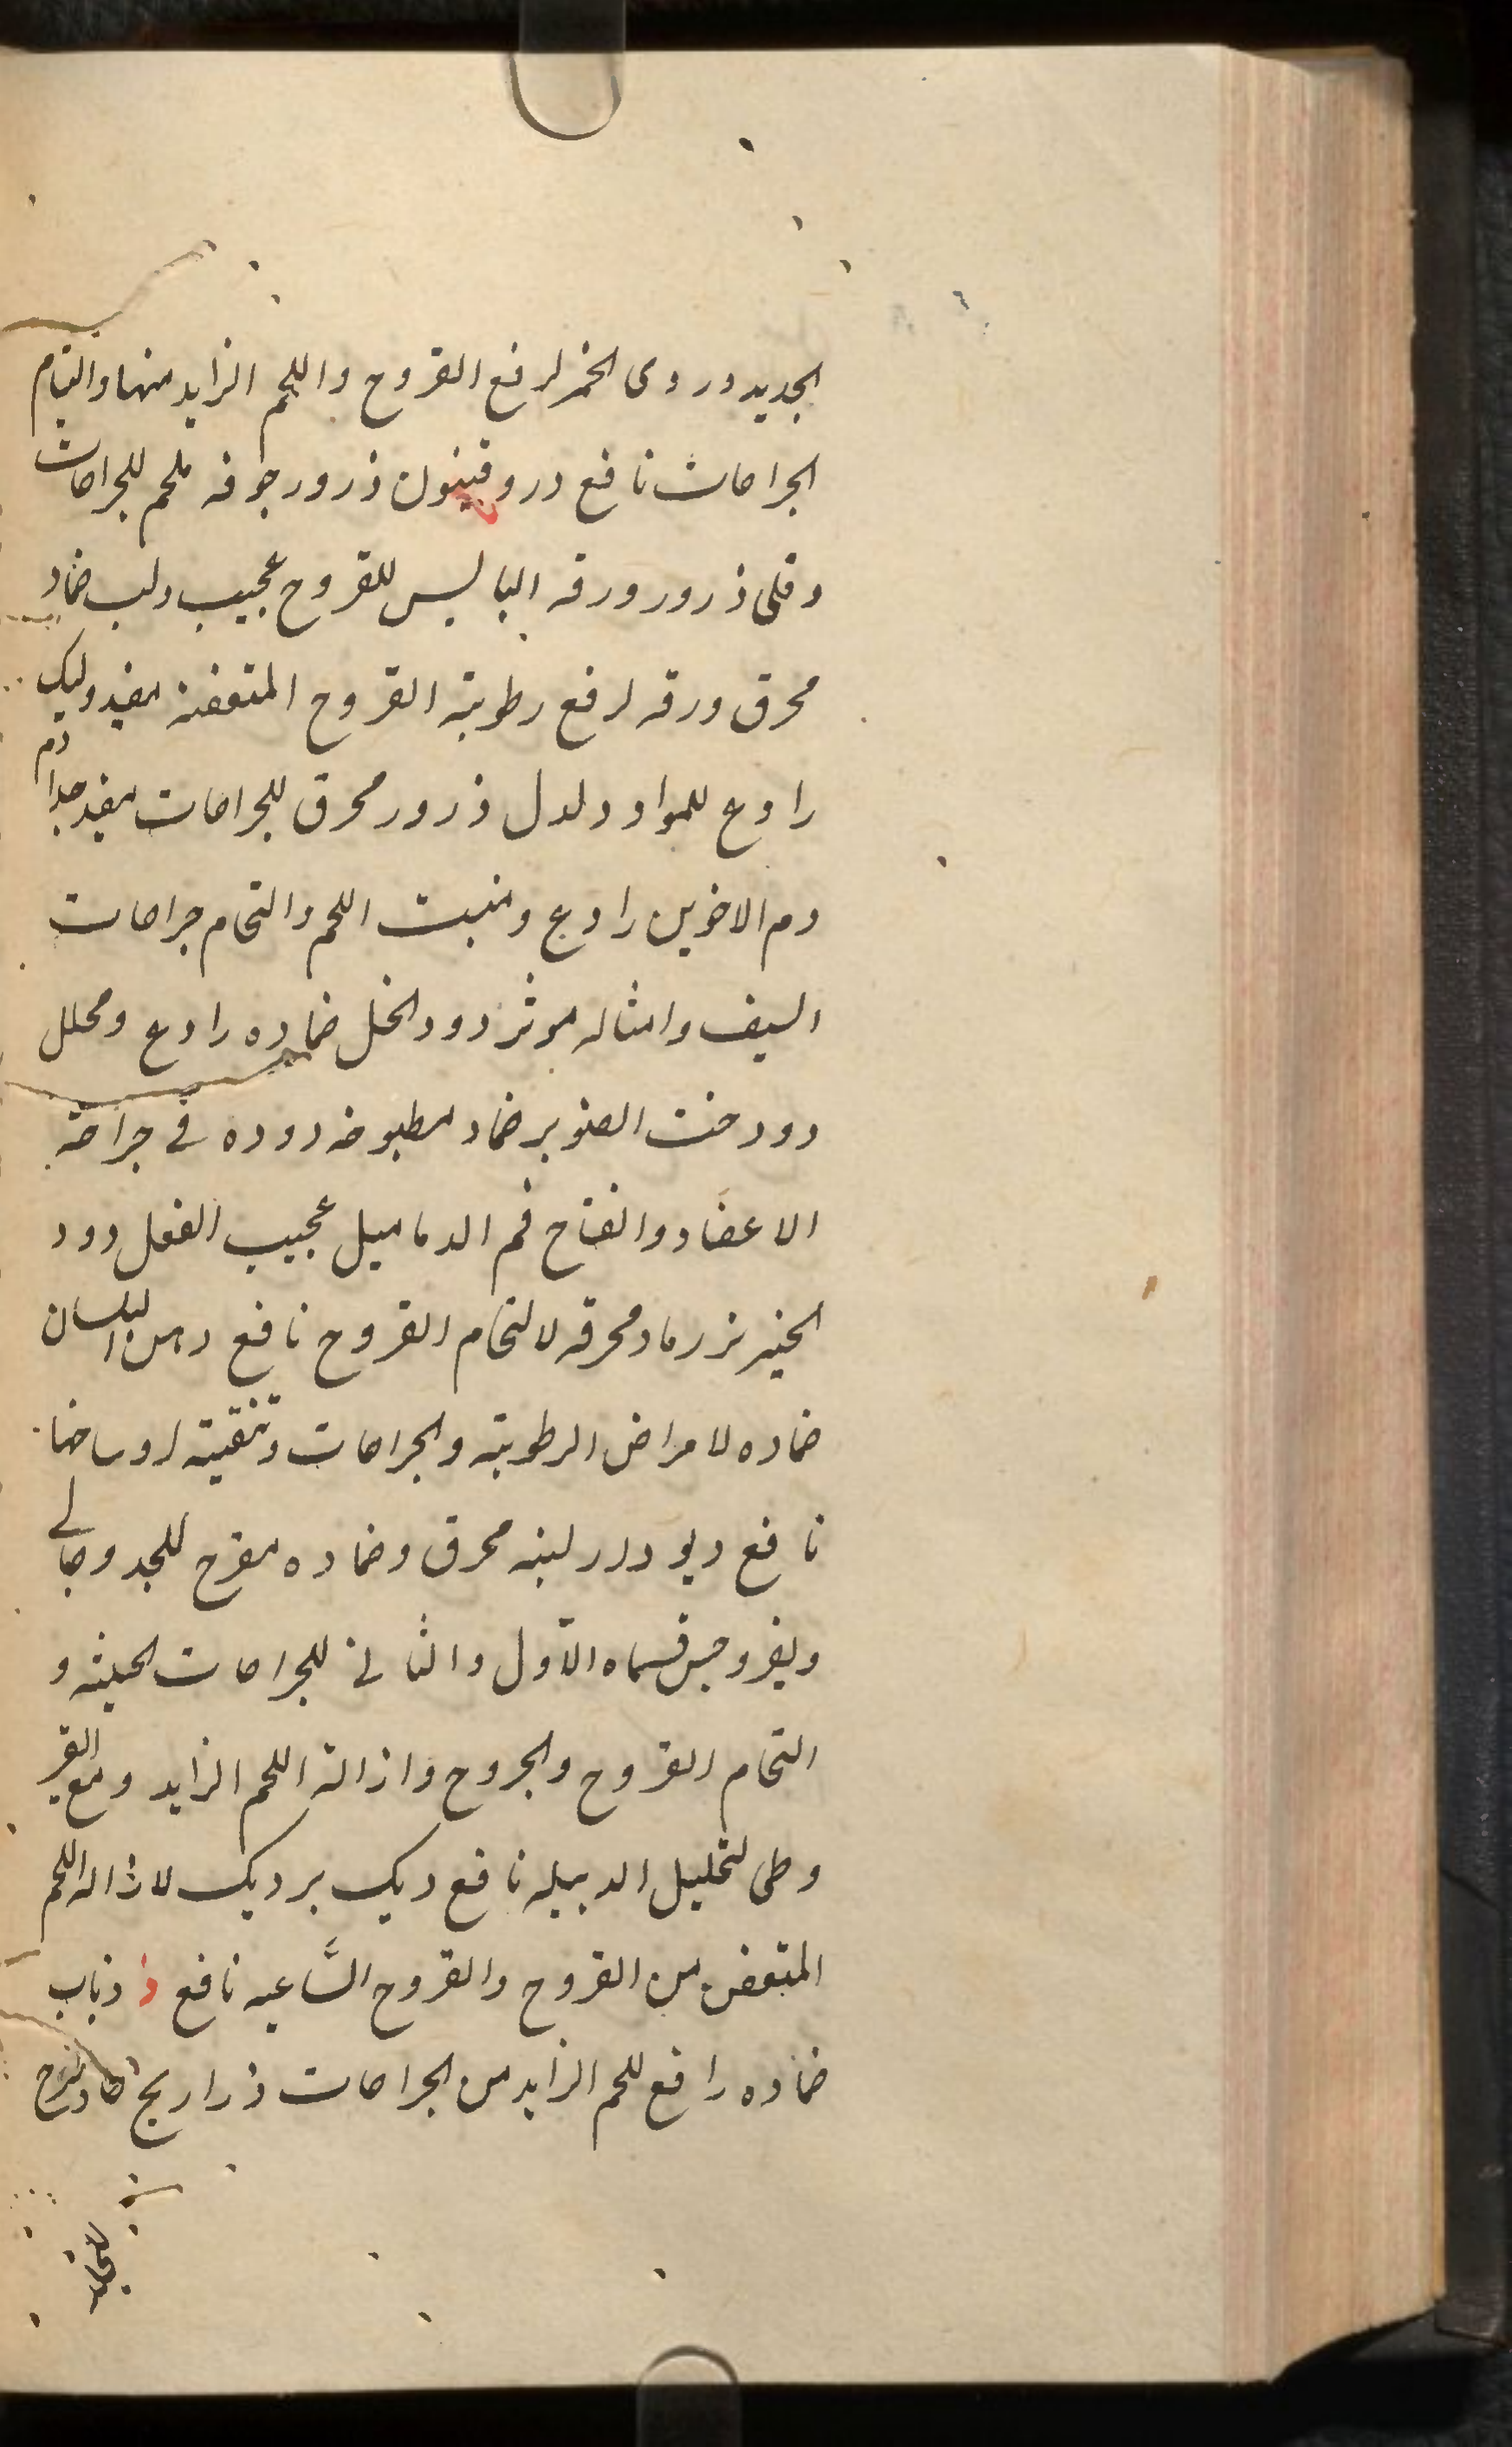 الجديد دردى الخمر لرفع القروح واللحم الزايد منها والتيام
الجراحات نافع دروقينون ذرور جوفه ملحم للجراحات
دفلى ذرور ورقه اليابس للقروح عجيب دلب ضماد
محرق ورقه لرفع رطوبة القروح المتعفنة مفيد وليك
رادع للمواد دلدل ذرور محرق للجراحات مفيد جدا دم
دم الاخوين رادع ومنبت اللحم والتحام جراحات
السيف وامثاله موثر دود الخل ضماده رادع ومحلل
دود خت الصنوبر ضماد مطبوخه دوده فى جراحة
الاعضاء وانفتاح فم الدماميل عجيب الفعل دود
الخنزير رماد محرقه لالتحام القروح نافع دهن البلسان
ضماده لامراض الرطوبة والجراحات وتنقية اوساخها
نافع ديودار لبنه محرق وضماده مقرح للجلد وجالى
ديفروجس قسماه الاول والثانى للجراحات الخبيثه و
التحام القروح والجروح وازالة اللحم الزايد ومع القير
وطى لتحليل الدبيله نافع ديك برديك لازاله اللحم
المتعفن من القروح والقروح الساعيه نافع ذ ذباب
ضماده رافع للحم الزايد من الجراحات ذراريح مقرح
للجلد